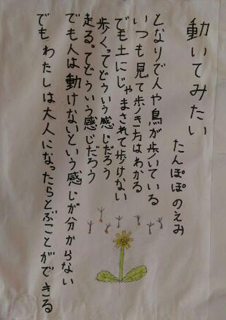 動いてみたい
たんぽぽのえみ
となりで人や鳥が歩いている
いつも見て歩き方はわかる
でも土にじゃまされて歩けない
歩く。てどういう感じだろう
走る。てどういう感じだろう
でも人は動けないという感じが分からない
でもわたしは大人になったらとぶことができる